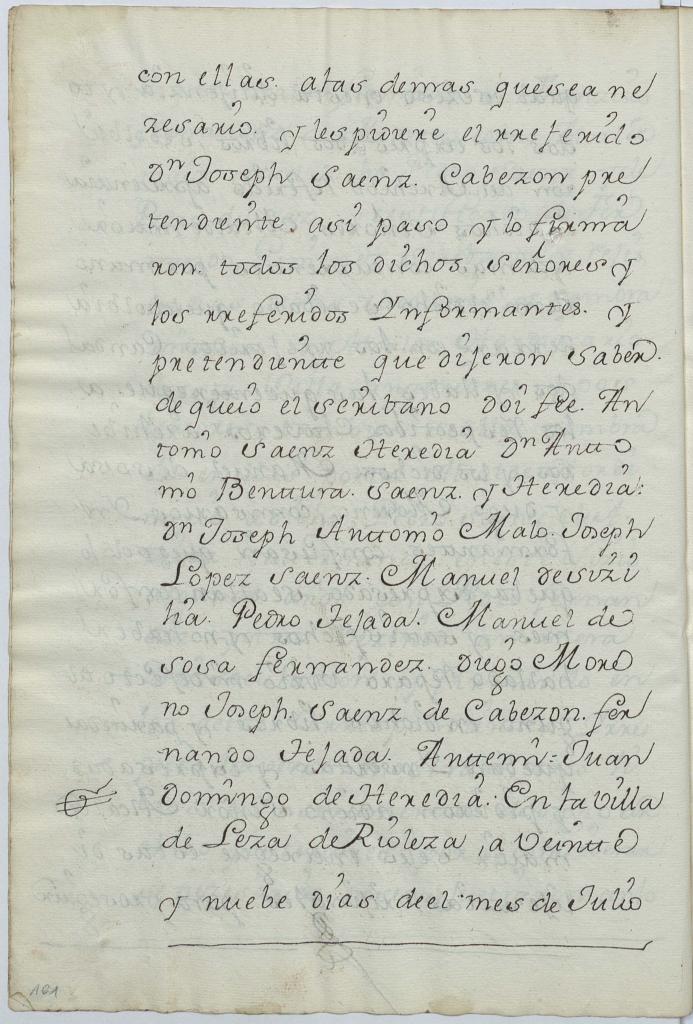 con ellas. atas demas quesea ne
zesario. y les pidiere el rreferido
Dn Joseph Saenz. Cabezon pre
tendiente. asi paso y lo firma
ron. todos los dichos. señores y
los rreferidos Ynformantes. y
pretendientte que dijeron saber.
de queio el scribano doi fee. An
tonio Saenz Heredia Dn Antto
nio Benttura. Saenz. y Heredia:
Dn Joseph Anttonio Malo. Joseph
Lopez Saenz. Manuel de
Pedro Tejada. Manuel de
sosa fernandez. Diego More
no Joseph. Saenz de Cabezon. fer
nando Tejada. Anttemi: Juan
Domingo de Heredia: En la Villa
de Leza de Rioleza, a Veintte
y nuebe dias de el mes de Julio
101